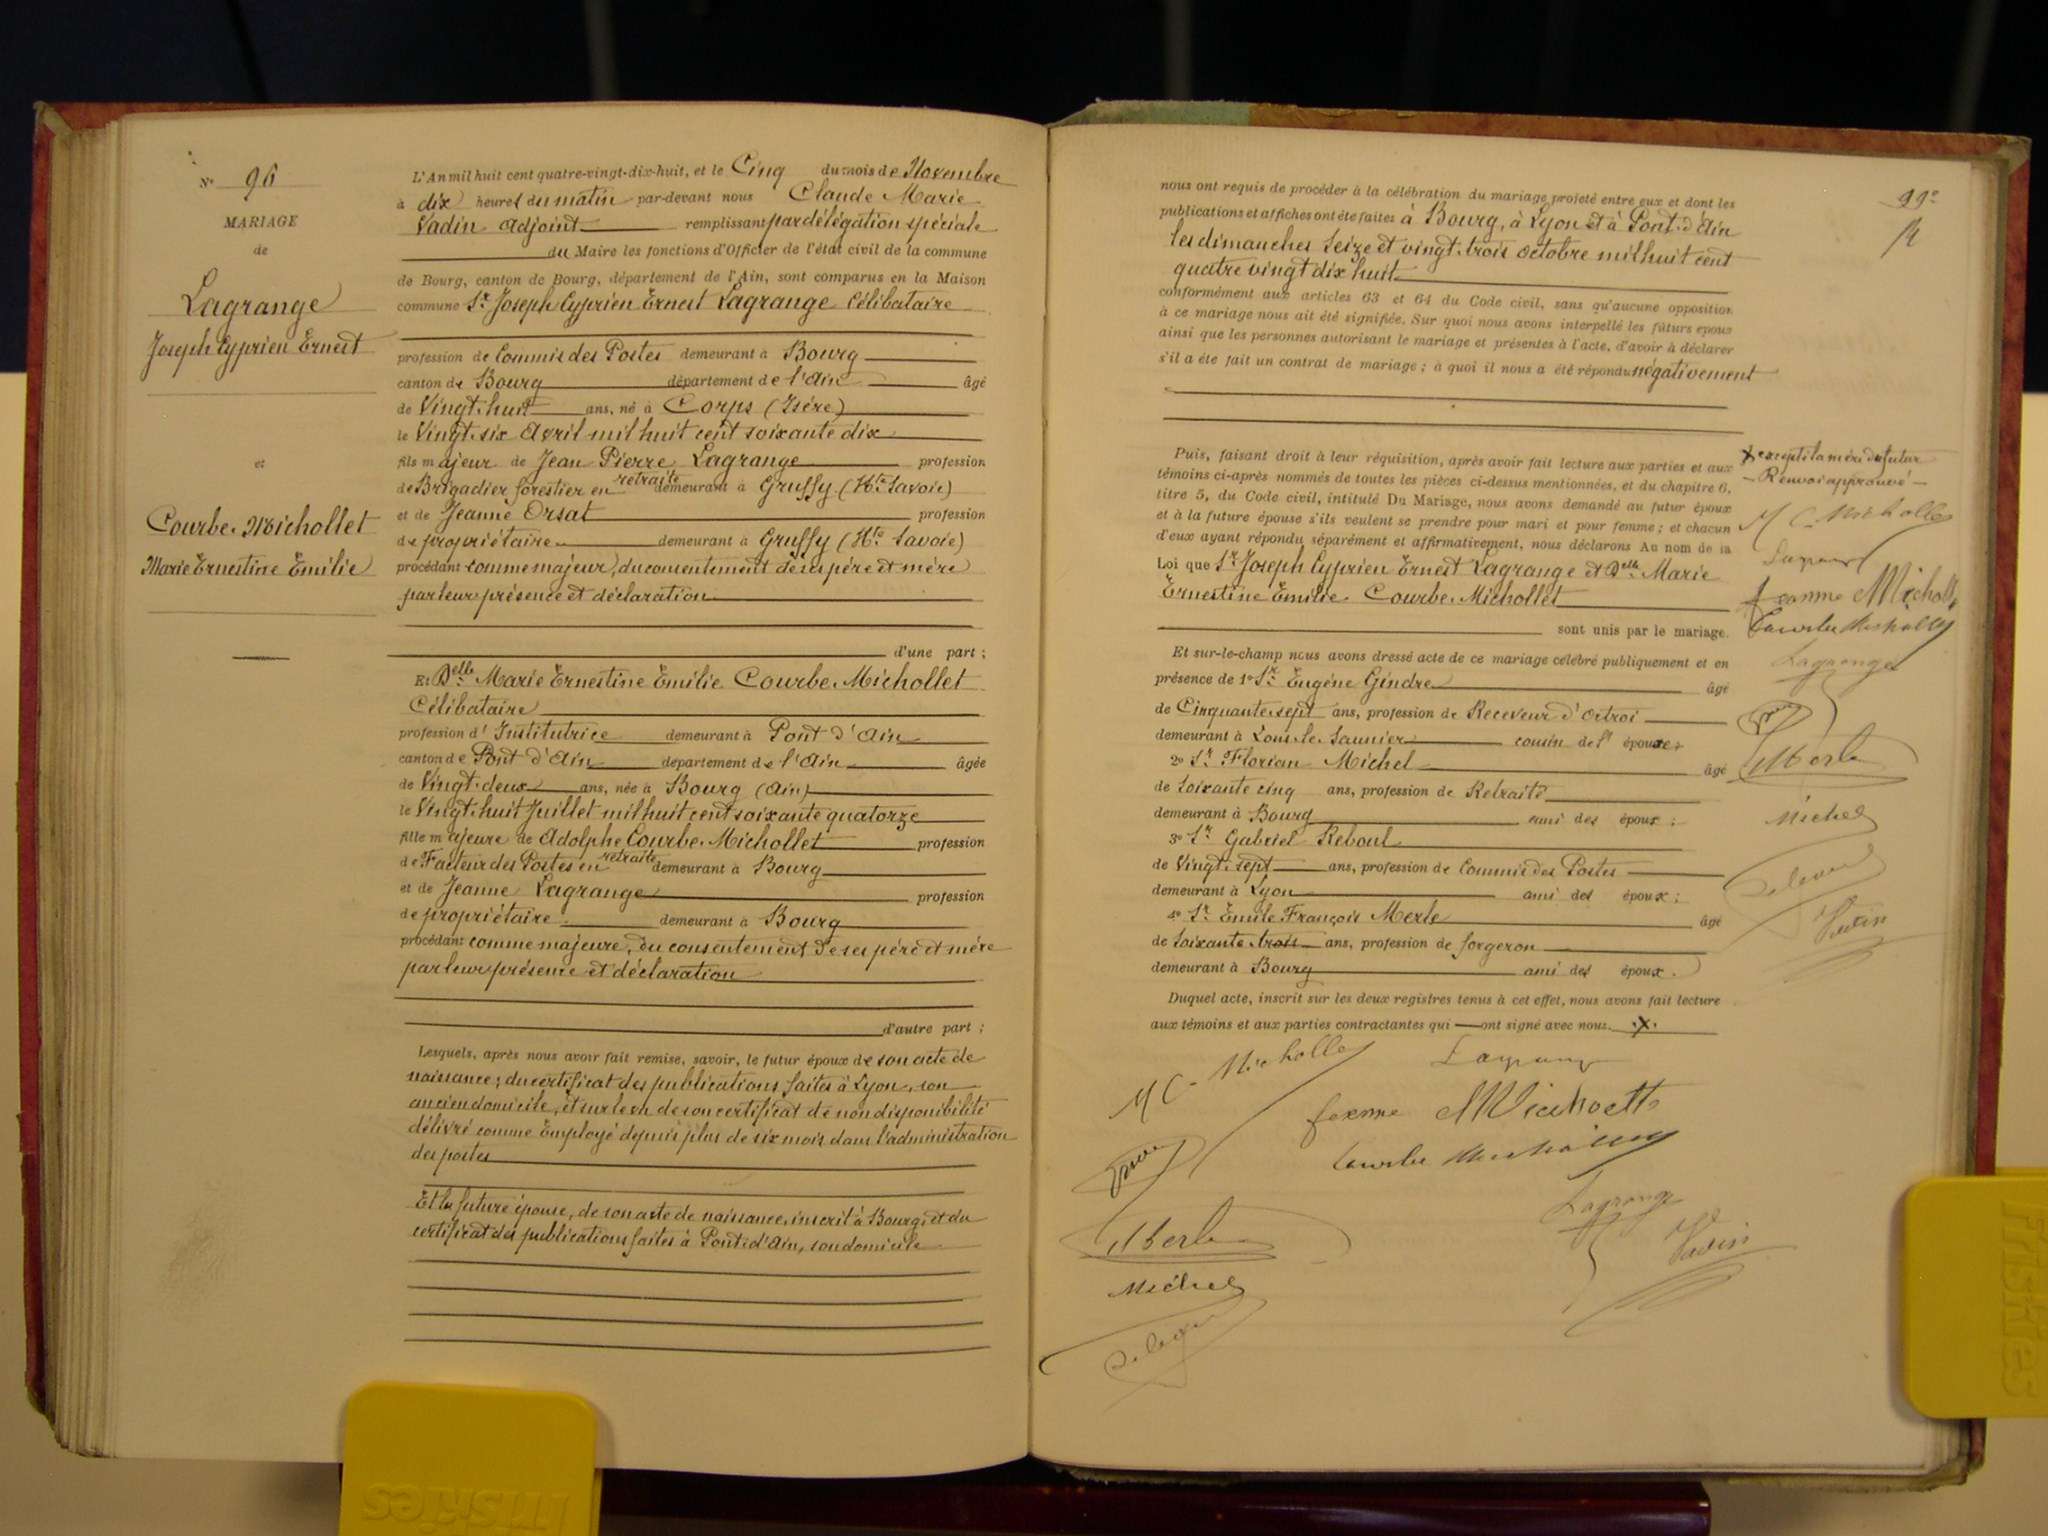 N° 96
MARIAGE
de
Lagrange
Joseph Cyprien Ernest
et
Courbe-Michollet
Marie Ernestine Emilie
L'An mil huit cent quatre-vingt-dix-huit, et le Cinq du mois de Novembre
à dix heures du matin par-devant nous Claude Marie
Vadin Adjoint remplissant par délégation spéciale
du Maire les fonctions d'Officier de l'état civil de la commune
de Bourg, canton de Bourg, département de l'Ain, sont comparus en la Maison
commune Sr. Joseph Cyprien Ernest Lagrange Célibataire
profession de Commis des Postes demeurant à Bourg
canton de Bourg département de l'Ain âgé
de Vingt-huit ans, né à Corps (Isére)
le Vingt-six Avril mil huit cent soixante dix
fils majeur de Jean Pierre Lagrange profession
de Brigadier forestier en retraite demeurant à Gruffy (Hte Savoie)
et de Jeanne Orsat profession
de propriétaire demeurant à Gruffy (Hte Savoie)
procédant comme majeur, du consentement de ses père et mère
par leur présence et déclaration
d'une part ;
Et Delle Marie Ernestine Emilie Courbe-Michollet
Célibataire
profession d'Institutrice demeurant à Pont d'Ain
canton de Pont d'Ain département de l'Ain âgée
de Vingt-deux ans, née à Bourg (Ain)
le Vingt-huit Juillet mil huit cent soixante quatorze
fille majeure de Adolphe Courbe-Michollet profession
de Facteur des Postes en retraite demeurant à Bourg
et de Jeanne Lagrange profession
de propriétaire demeurant à Bourg
procédant comme majeure, du consentement de ses père et mère
par leur présence et déclaration
d'autre part ;
Lesquels, après nous avoir fait remise, savoir, le futur époux de son acte de
naissance ; du certificat des publications faites à Lyon, son
ancien domicile, et sur le vu de son certificat de non disponibilité
délivré comme Employé depuis plus de six mois dans l'administration
des postes
Et la future épouse, de son acte de naissance, inscrit à Bourg, et du
certificat des publications faites à Pont d'Ain, son domicile
99e
nous ont requis de procéder à la célébration du mariage projeté entre eux et dont les
publications et affiches ont été faites à Bourg, à Lyon et à Pont-d'Ain
les dimanches Seize et vingt-trois octobre mil huit cent
quatre vingt dix huit
conformément aux articles 63 et 64 du Code civil, sans qu'aucune opposition
à ce mariage nous ait été signifiée. Sur quoi nous avons interpellé les futurs époux
ainsi que les personnes autorisant le mariage et présentes à l'acte, d'avoir à déclarer
s'il a été fait un contrat de mariage ; à quoi il nous a été répondu négativement
Puis, faisant droit à leur réquisition, après avoir fait lecture aux parties et aux
témoins ci-après nommés de toutes les pièces ci-dessus mentionnées, et du chapitre 6,
titre 5, du Code civil, intitulé Du Mariage, nous avons demandé au futur époux
et à la future épouse s'ils veulent se prendre pour mari et pour femme ; et chacun
d'eux ayant répondu séparément et affirmativement, nous déclarons Au nom de la
Loi que Sr. Joseph Cyprien Ernest Lagrange et Delle Marie
Ernestine Emilie Courbe-Michollet
sont unis par le mariage.
Et sur-le-champ nous avons dressé acte de ce mariage célébré publiquement et en
présence de 1° Sr. Eugène Gindre âgé
de Cinquante-sept ans, profession de Receveur d'octroi
demeurant à Lons-le-Saunier cousin de l'épouse ;
2° Sr. Florian Michel âgé
de Soixante cinq ans, profession de Retraité
demeurant à Bourg ami des époux ;
3° Sr. Gabriel Reboul
de Vingt-sept ans, profession de Commis des Postes
demeurant à Lyon ami des époux ;
4° Sr. Emile François Merle âgé
de Soixante trois ans, profession de forgeron
demeurant à Bourg ami des époux.
Duquel acte, inscrit sur les deux registres tenus à cet effet, nous avons fait lecture
aux témoins et aux parties contractantes qui ont signé avec nous. X
X excepté la mère du futur
Renvoi approuvé
M C-Michollet
Lagrange
femme Michollet
Courbe Michollet
Lagrange
Merle
Michel
Reboul
Vadin
M C-Michollet
Lagrange
femme Michollet
Courbe Michollet
Lagrange
Merle
Vadin
Michel
Reboul
Friskies
Friskies